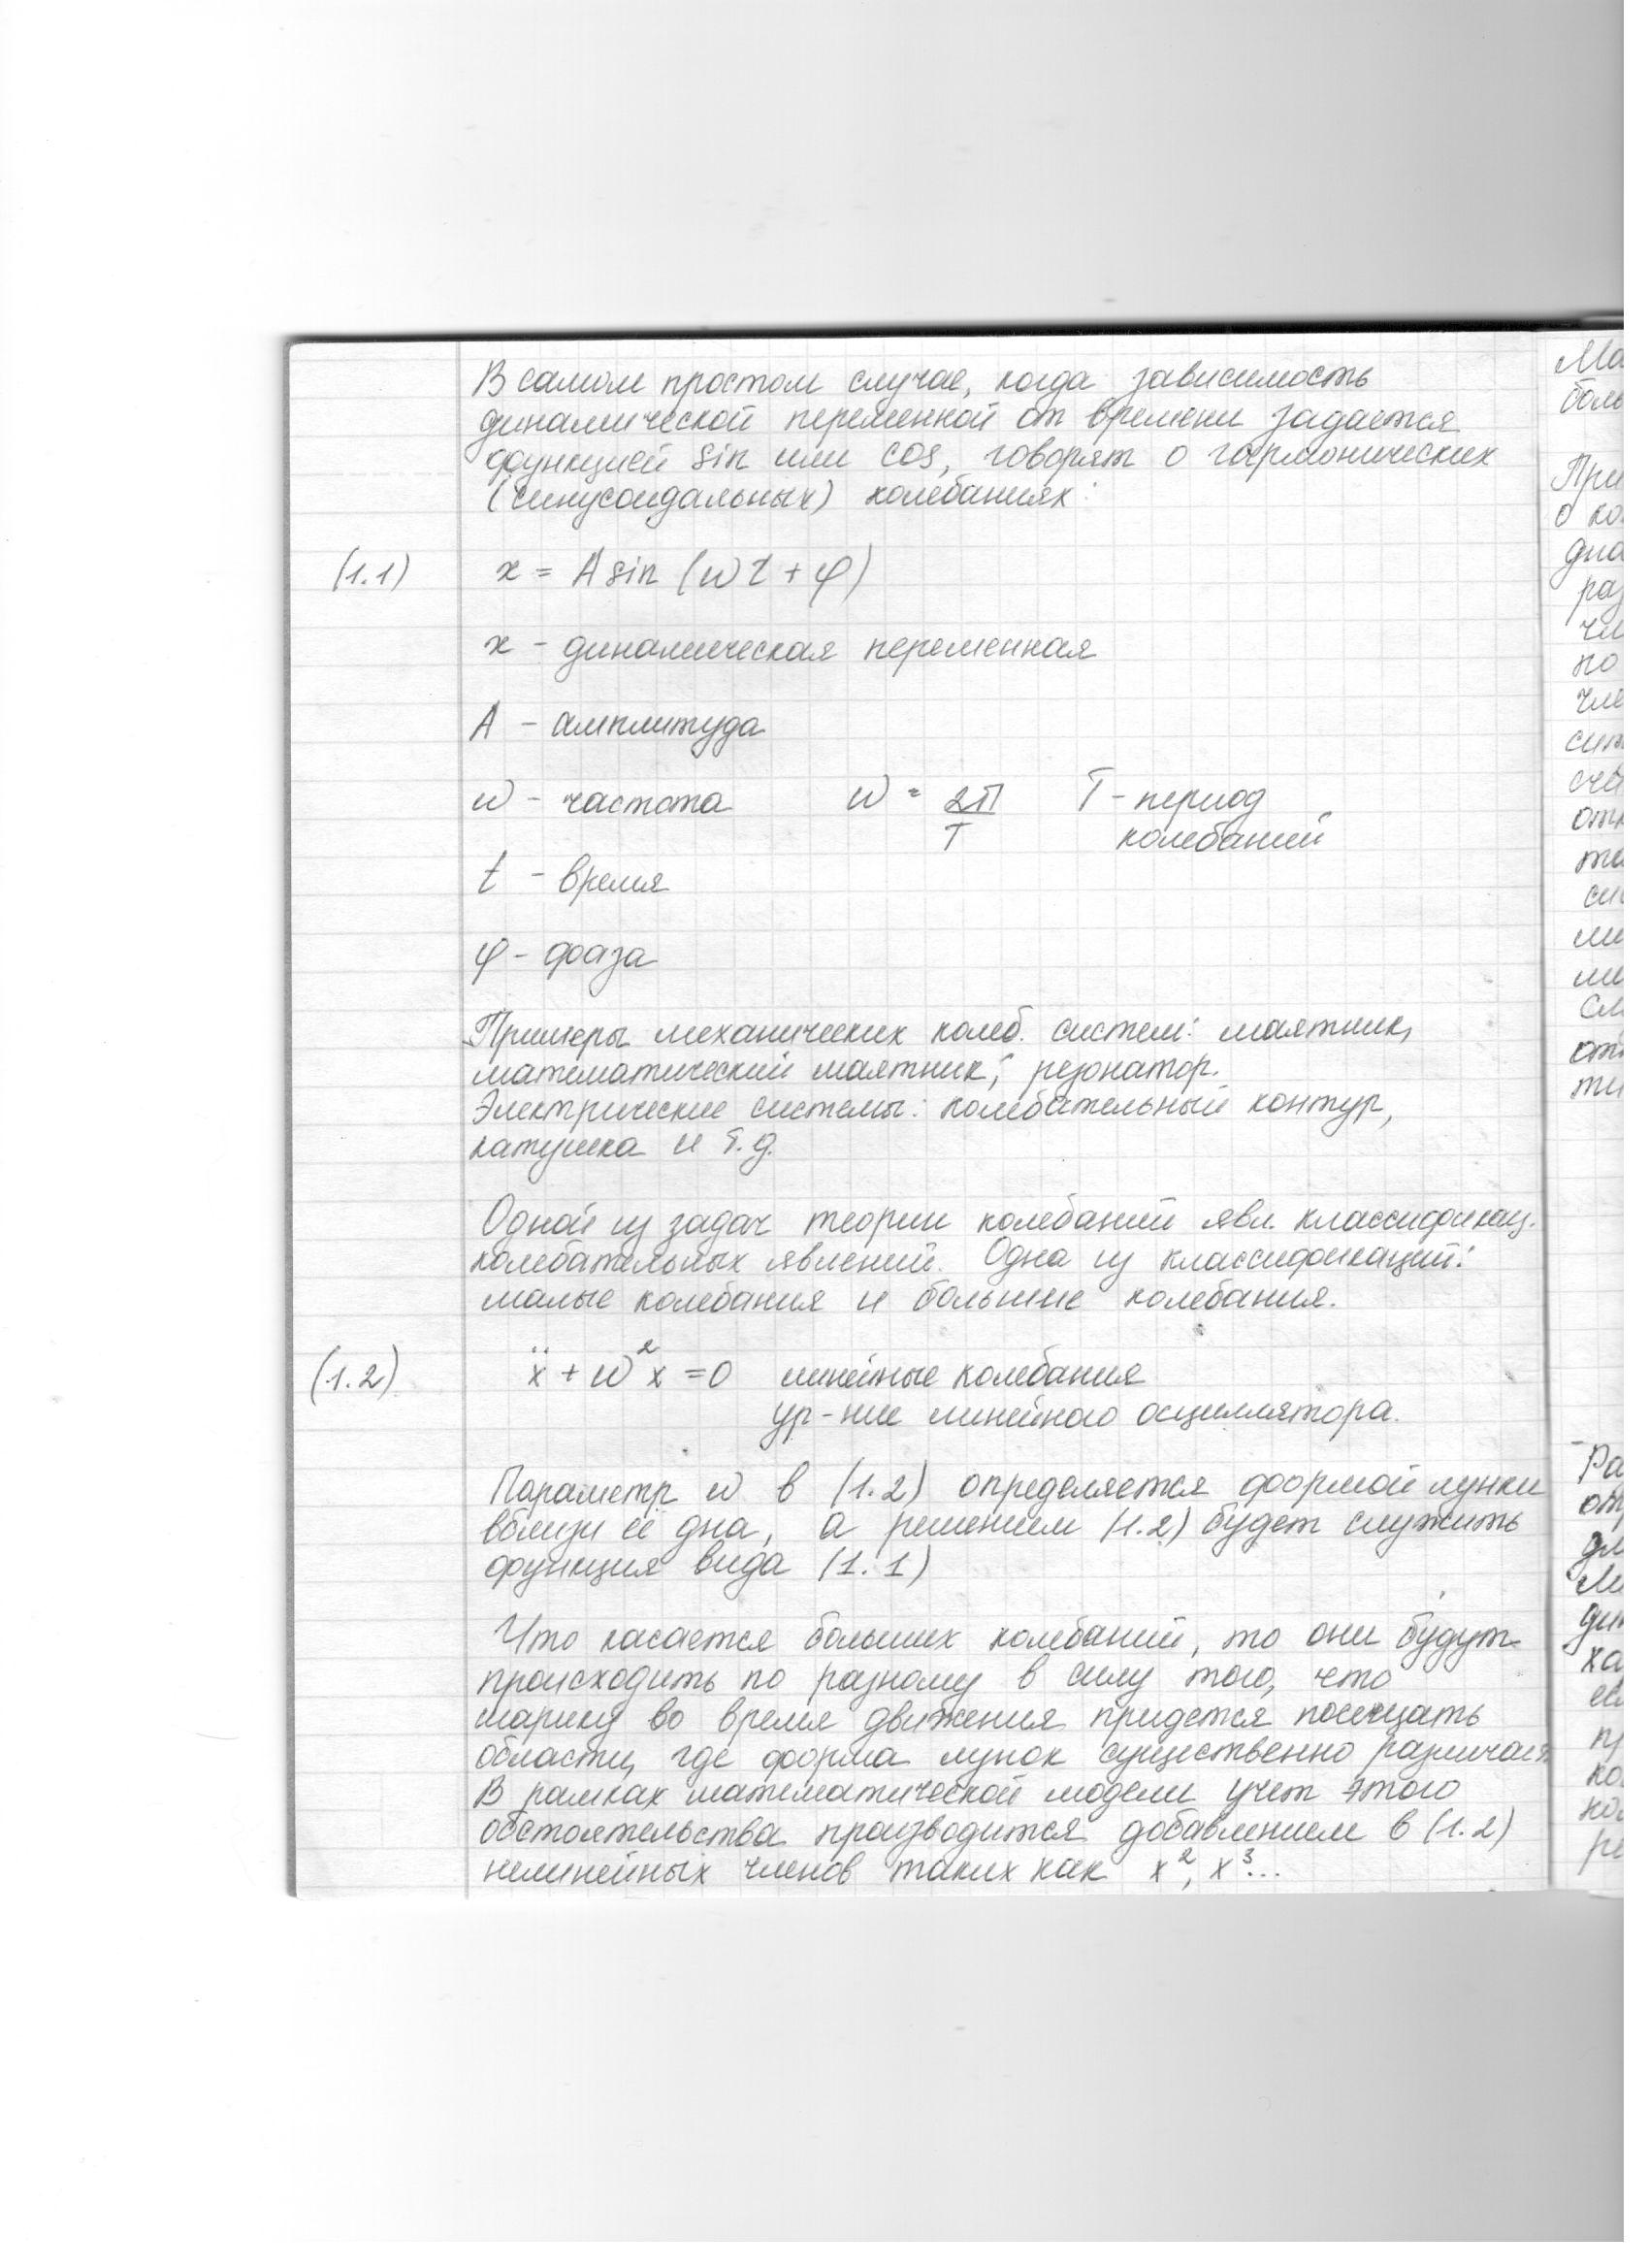 В самом простом случае, когда зависимость
динамической переменной от времени задается
функцией sin или cos, говорят о гармонических
(синусоидальных) колебаниях:
(1.1) x = A sin (ωt + φ)
x - динамическая переменная
A - амплитуда
ω - частота ω = 2π/T T - период
колебаний
t - время
φ - фаза
Примеры механических колеб. систем: маятник,
математический маятник, резонатор.
Электрические системы: колебательный контур,
катушка и т.д.
Одной из задач теории колебаний явл. классификац.
колебательных явлений. Одна из классификаций:
малые колебания и большие колебания.
(1.2) ẍ + ω²x = 0 линейные колебания
ур-ние линейного осциллятора.
Параметр ω в (1.2) определяется формой лунки
вблизи её дна, а решением (1.2) будет служить
функция вида (1.1)
Что касается больших колебаний, то они будут
происходить по разному в силу того, что
шарику во время движения придется посещать
области, где форма лунок существенно различается
В рамках математической модели учет этого
обстоятельства производится добавлением в (1.2)
нелинейных членов таких как x², x³...
Ма
боль
При
о ко
дна
раз
чл
по
чле
сип
сче
отк
та
си
ли
ли
Сл
отп
ти
Ра
отр
дл
Ли
дин
ха
ес
пр
ко
но
ре